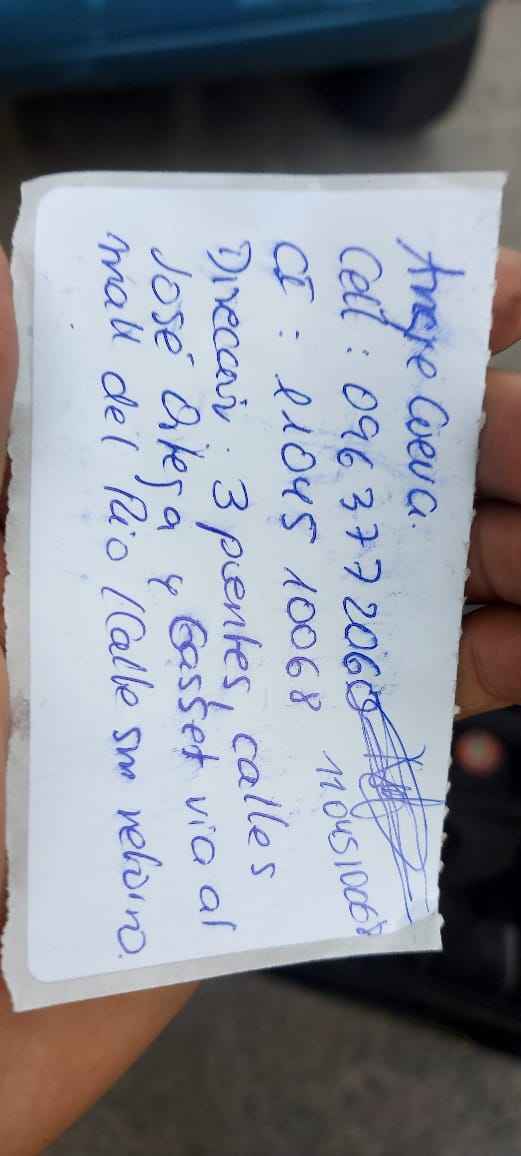 Angie Cueva.
Cell: 096 377 2060
CI: 11045 10068
1104510068
Dirección: 3 puentes, calles
José Ortega y Gasset via al
mall del Rio / Calle sin retorno.